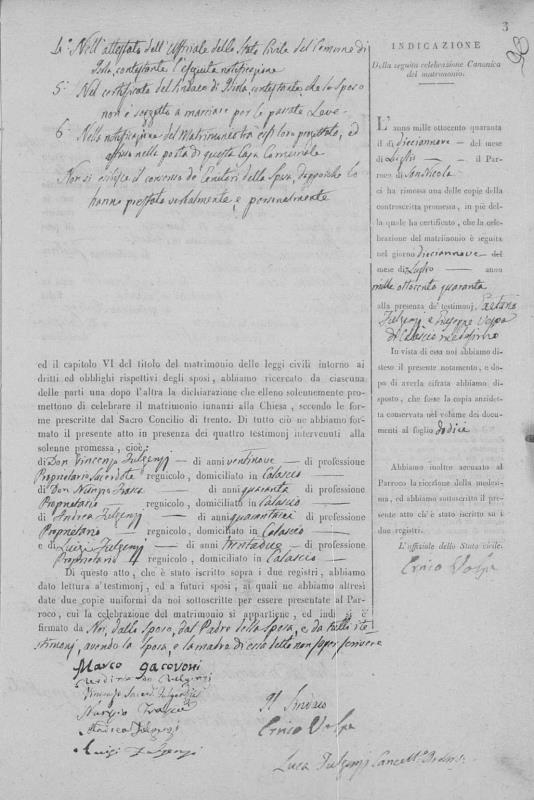 4.° Nell'attestato dell'Uffiziale dello Stato Civile del Comune di
contestante l'eseguita notificazione
5.° Nel certificato del Sindaco di contestante che lo Sposo
non è soggetto a marciare per le passate Leve.
6.° Nella notificazione del Matrimonio tra essi loro progettato, ed
affissa nella porta di questa Casa Comunale
Non si esibisce il consenso de' Genitori della Sposa, dappoichè lo
hanno prestato verbalmente, e personalmente
ed il capitolo VI del titolo del matrimonio delle leggi civili intorno ai
dritti ed obblighi rispettivi degli sposi, abbiamo ricercato da ciascuna
delle parti una dopo l'altra la dichiarazione che elleno solennemente pro-
mettono di celebrare il matrimonio innanzi alla Chiesa, secondo le for-
me prescritte dal Sacro Concilio di trento. Di tutto ciò ne abbiamo
formato il presente atto in presenza dei quattro testimonj intervenuti alla
solenne promessa, cioè:
di Don Vincenzo Fulgenzj — di anni ventinove — di professione
Proprietario Sacerdote regnicolo, domiciliato in Calascio
di Don Nunzio Frasca — di anni quaranta — di professione
Proprietario — regnicolo, domiciliato in Calascio
di Andrea Fulgenzj — di anni quarantasei — di professione
Proprietario — regnicolo, domiciliato in Calascio
e di Luigi Fulgenzj — di anni trentadue — di professione
Proprietario regnicolo, domiciliato in Calascio
Di questo atto, che è stato iscritto sopra i due registri, abbiamo
dato lettura a' testimonj, ed a futuri sposi, ai quali ne abbiamo altresì
date due copie uniformi da noi sottoscritte per essere presentate al Par-
roco, cui la celebrazione del matrimonio si appartiene, ed indi si è
firmato da Noi, dallo Sposo, dal Padre della Sposa, e da tutti i te-
stimonj, avendo la Sposa, e la madre di essa detto non saper scrivere
Marco Jacovoni
Fulgenzj
Vincenzo Sacerd. Fulgenzj
Nunzio Frasca
Andrea Fulgenzj
Luigi Fulgenzj
Il Sindaco
Errico Volpe
Luca Fulgenzj Cancell.
3
98
INDICAZIONE
Della seguita celebrazione Canonica
del matrimonio.
L'anno mille ottocento quaranta
il dì diecinnove — del mese
di Luglio — il Par-
roco di San Nicola
ci ha rimessa una delle copie della
controscritta promessa, in piè del-
la quale ha certificato, che la ce-
lebrazione del matrimonio è seguita
nel giorno diecinnove del
mese di Luglio — anno
mille ottocento quaranta
alla presenza de' testimonj Gaetano
Fulgenzj e Giuseppe Volpe
di Calascio medesimo
In vista di essa noi abbiamo di-
steso il presente notamento, e do-
po di averla cifrata abbiamo di-
sposto, che fosse la copia anzidet-
ta conservata nel volume dei docu-
menti al foglio dodici
Abbiamo inoltre accusato al
Parroco la ricezione della medesi-
ma, ed abbiamo sottoscritto il pre-
sente atto ch'è stato iscritto su i
due registri.
L'uffiziale dello Stato civile.
Errico Volpe